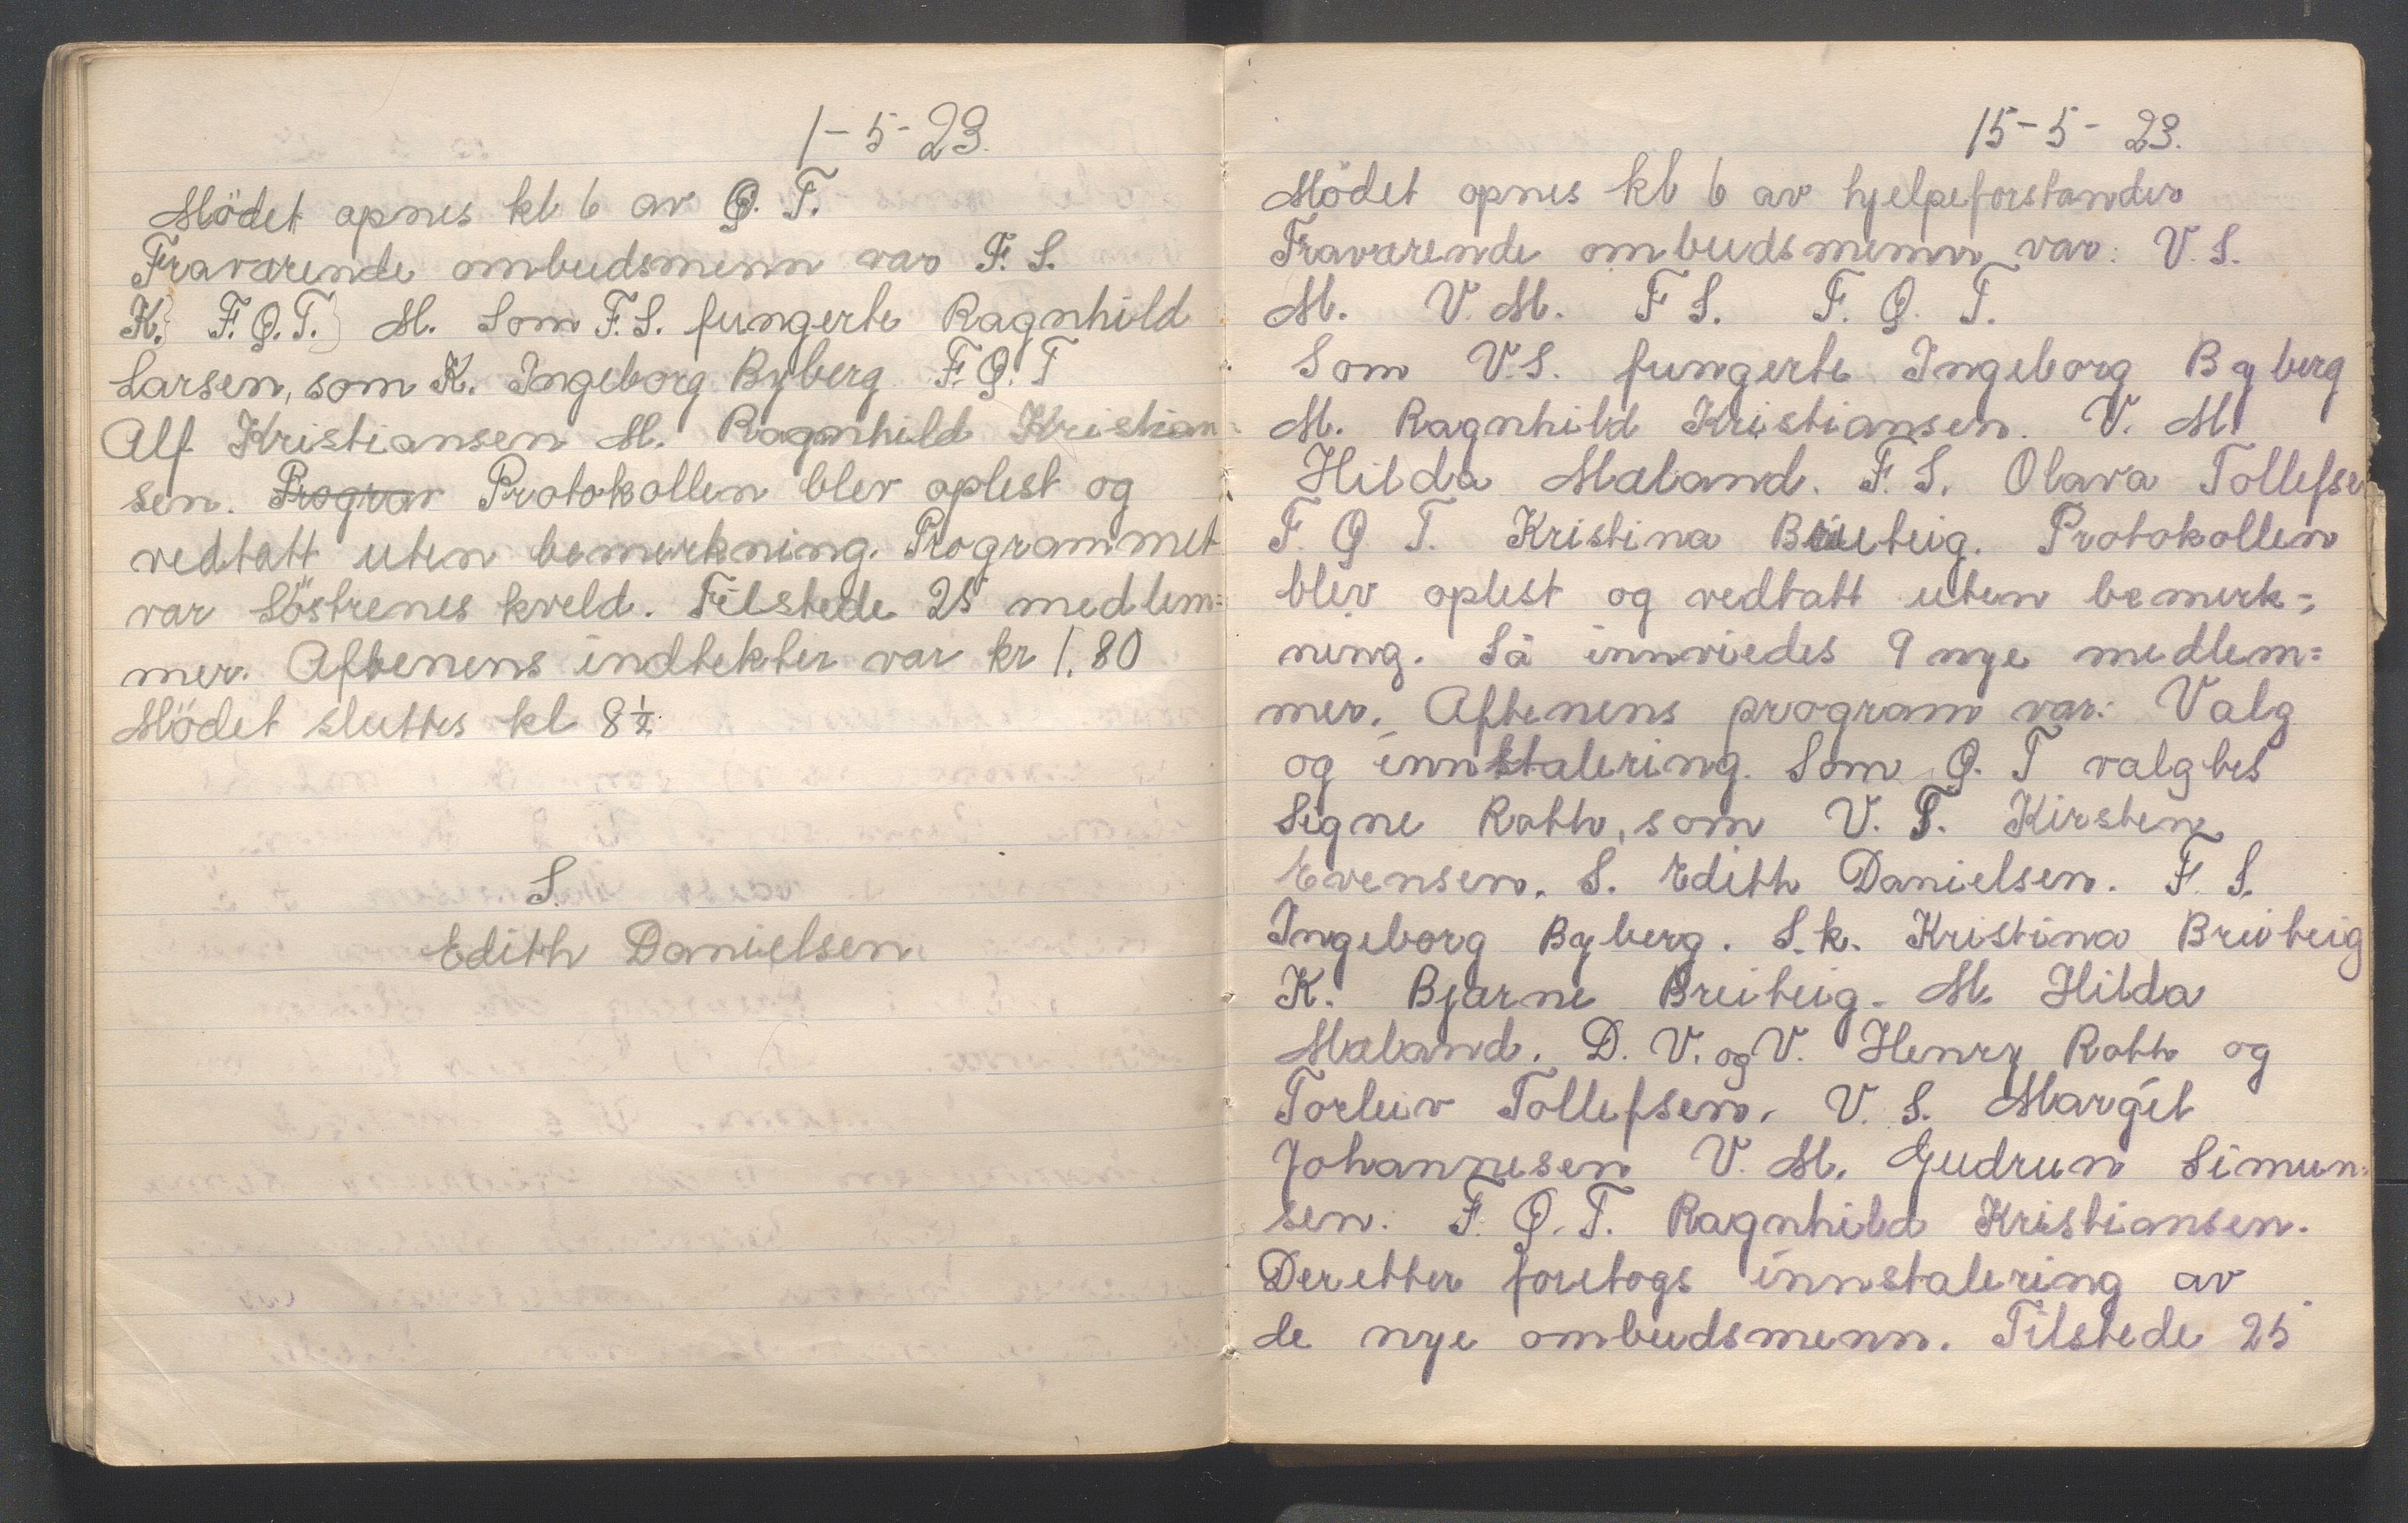 1-5-23.
Mödet opnes kl 6 av Ø. T.
Fraværende ombudsmenn var F. S.
K. F. Ø. T. M. Som F. S. fungerte Ragnhild
Larsen, som K. Ingeborg Byberg F. Ø. T
Alf Kristiansen M. Ragnhild Kristian
sen. Prograv Protokollen blev oplest og
vedtatt uten bemerkning. Programmet
var Söstrenes kveld. Tilstede 25 medlem=
mer. Aftenens indtekter var kr 1.80
Mödet sluttes kl 8½
S.
Edith Danielsen
15-5-23.
Mödet opnes kl 6 av hjelpeforstander
Fraværende ombudsmenn var: V. S.
M. V. M. F S. F. Ø. T.
Som V.S. fungerte Ingeborg Byberg
M. Ragnhild Kristiansen. V. M.
Hilda Maland. F. S. Olava Tollefse
F. Ø T. Kristina Breiteig. Protokollen
blev oplest og vedtatt uten bemerk=
ning. Så innviedes 9 nye medlem=
mer. Aftenens program var: Valg
og innstalering. Som Ø. T valgtes
Signe Roth, som V. T. Kirsten
Evensen. S. Edith Danielsen. F. S.
Ingeborg Byberg. S.k. Kristina Breiteig
K. Bjarne Breiteig. M. Hilda
Maland. D. V. og V. Henry Roth og
Torleiv Tollefsen. V. S. Margit
Johannesen V. M. Gudrun Simun=
sen. F. Ø. T. Ragnhild Kristiansen.
Deretter foretogs innstalering av
de nye ombudsmenn. Tilstede 25